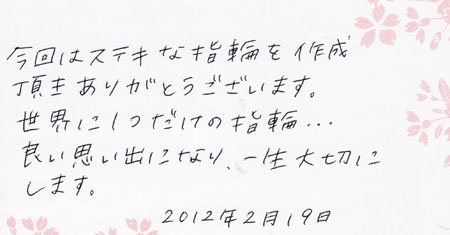 今回はステキな指輪を作成
頂きありがとうございます。
世界に1つだけの指輪...
良い思い出になり、一生大切に
します。
2012年2月19日